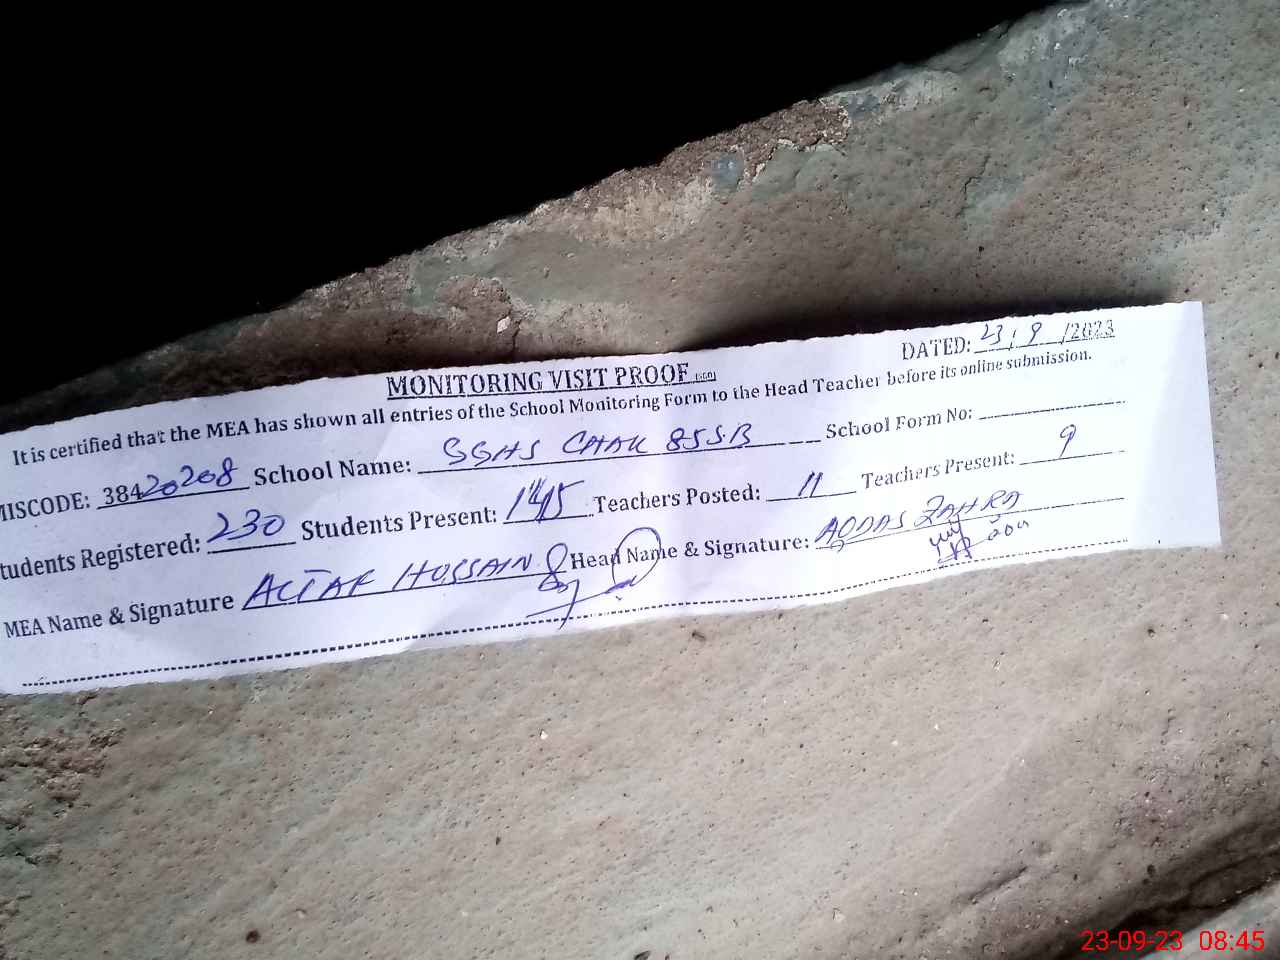 MONITORING VISIT PROOF
DATED: 23/9/2023
It is certified that the MEA has shown all entries of the School Monitoring Form to the Head Teacher before its online submission.
MISCODE: 38420208 School Name: GGHS CHAK 85 S.B School Form No:
tudents Registered: 230 Students Present: 145 Teachers Posted: 11 Teachers Present: 9
MEA Name & Signature ALTAF HUSSAIN Head Name & Signature: ZAHRA
23-09-23 08:45